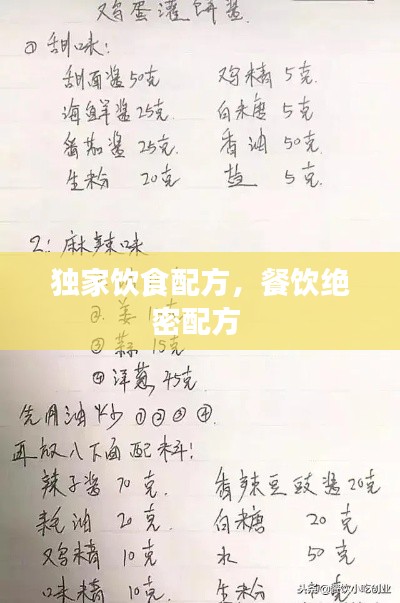 鸡蛋灌饼酱
①甜味：
甜面酱50克 鸡精5克
海鲜酱25克 白糖5克
番茄酱25克 香油50克
生粉 20克 盐 5克
2：麻辣味
独家饮食配方，餐饮绝
密配方
②姜
③蒜 15克
④洋葱 45克
先用油炒①②③④.
再放入下面配料：
辣子酱70克 香辣豆豉酱20克
耗油 20克 白糖 20克
鸡精 10克 水 50克
味精 10克 生粉
头条@餐饮小吃创业